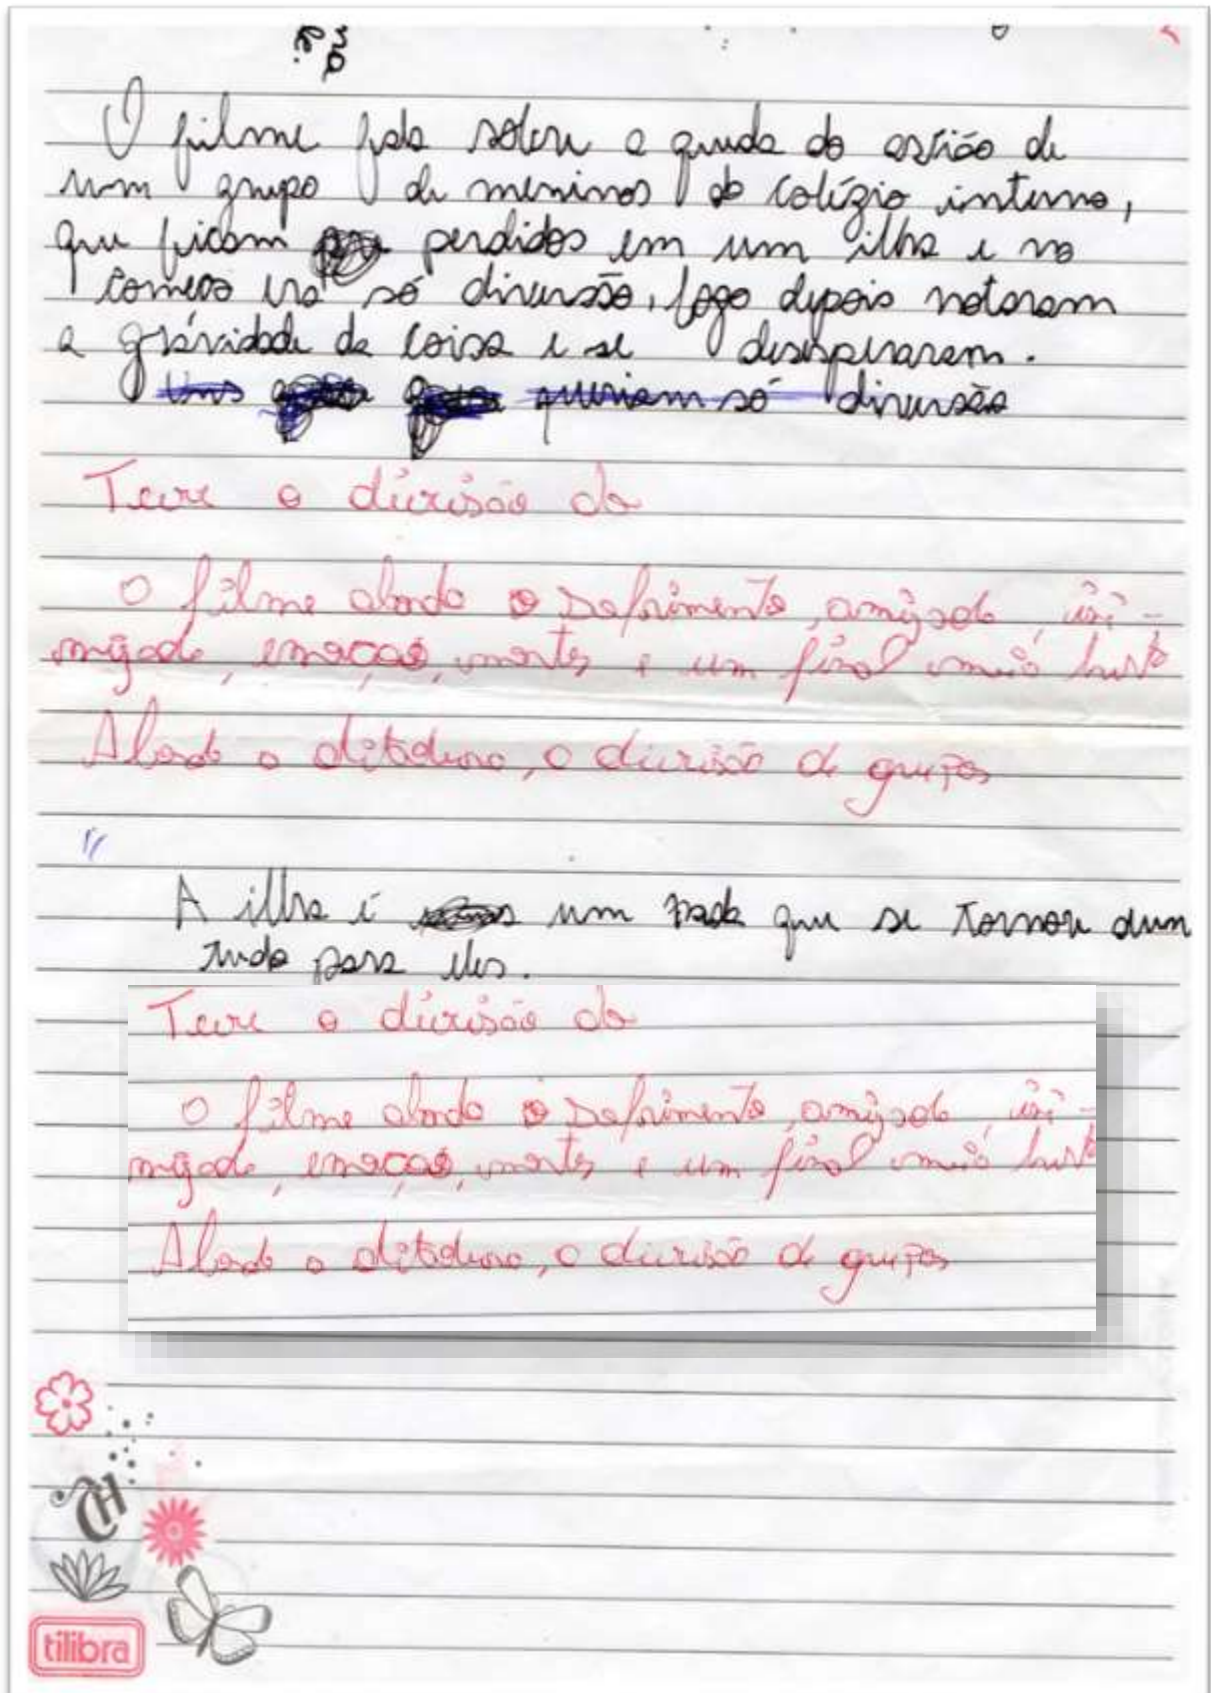 O filme fala sobre a queda do avião de
um grupo de meninos do colégio interno,
que ficam perdidos em um ilha e no
começo era só diversão, logo depois notaram
a grávidade da coisa e se desesperaram.
Uns queriam só diversão
Teve a divisão do
O filme aborda o sofrimento, amizade, ini-
mizade, emoções, mortes e um final meio
Aborda a ditadura, a divisão de grupos
A ilha é um nada que se tornou dum
tudo para eles.
Teve a divisão do
O filme aborda o sofrimento, amizade, ini-
mizade, emoções, mortes e um final meio
Aborda a ditadura, a divisão de grupos
CH
tilibra